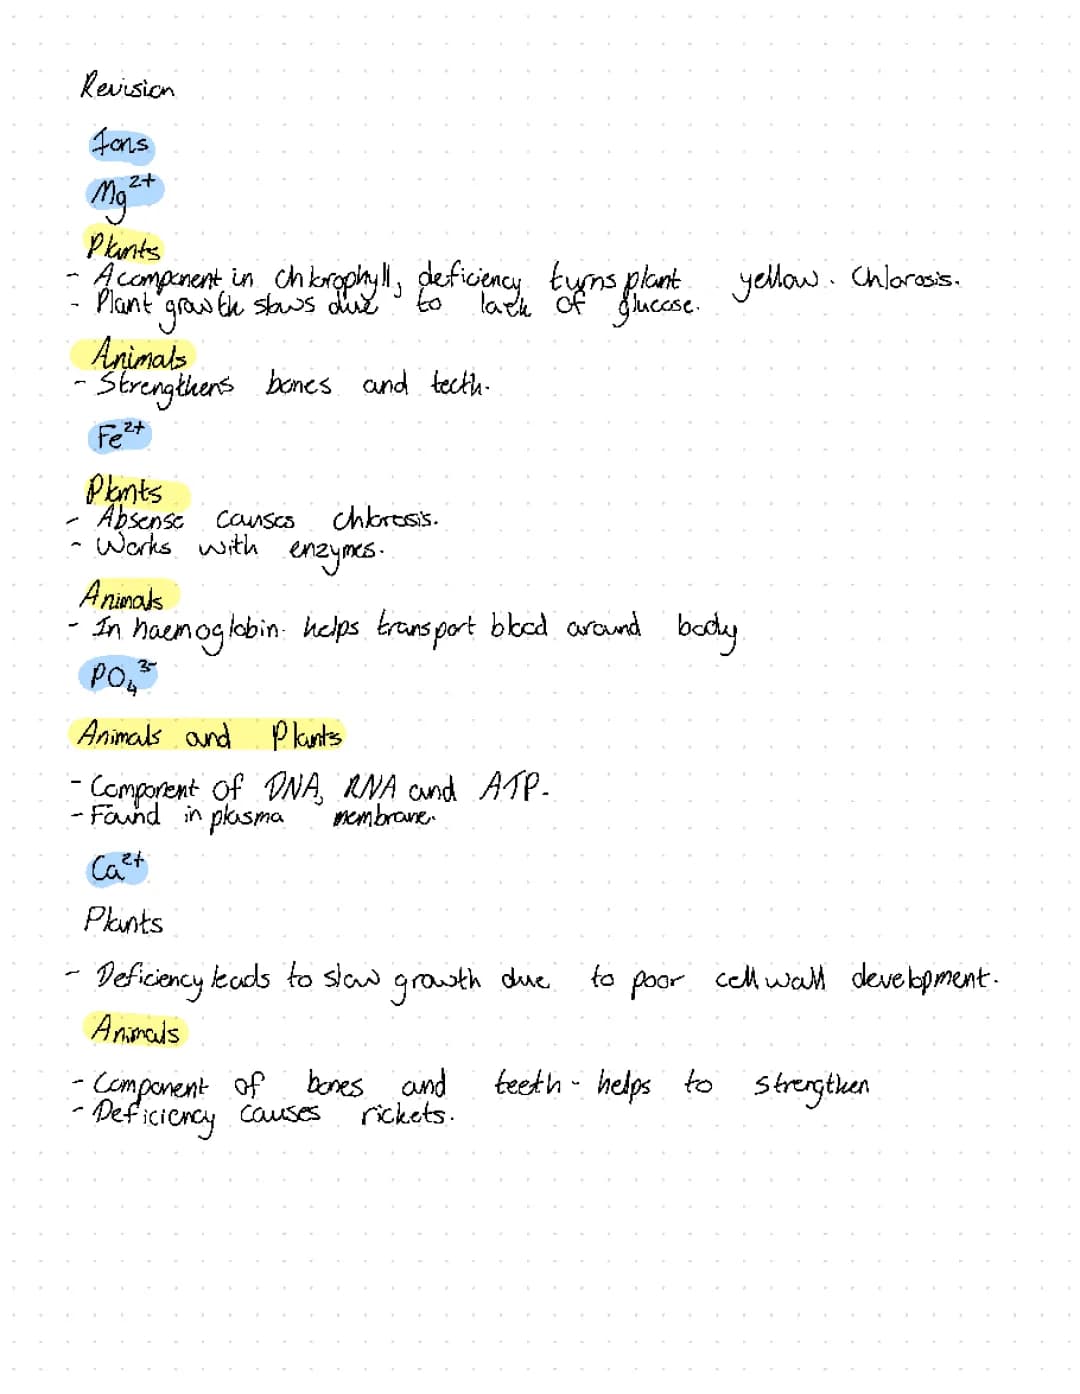 Revision
Ions
Mg²⁺
Plants
- A component in chlorophyll, deficiency turns plant yellow. Chlorosis.
- Plant growth slows due to lack of glucose.
Animals
- Strengthens bones and teeth.
Fe²⁺
Plants
- Absense causes chlorosis.
- Works with enzymes.
Animals
- In haemoglobin. helps transport blood around body
PO₄³⁻
Animals and Plants
- Component of DNA, RNA and ATP.
- Found in plasma membrane.
Ca²⁺
Plants
- Deficiency leads to slow growth due to poor cell wall development.
Animals
- Component of bones and teeth - helps to strengthen
- Deficiency causes rickets.